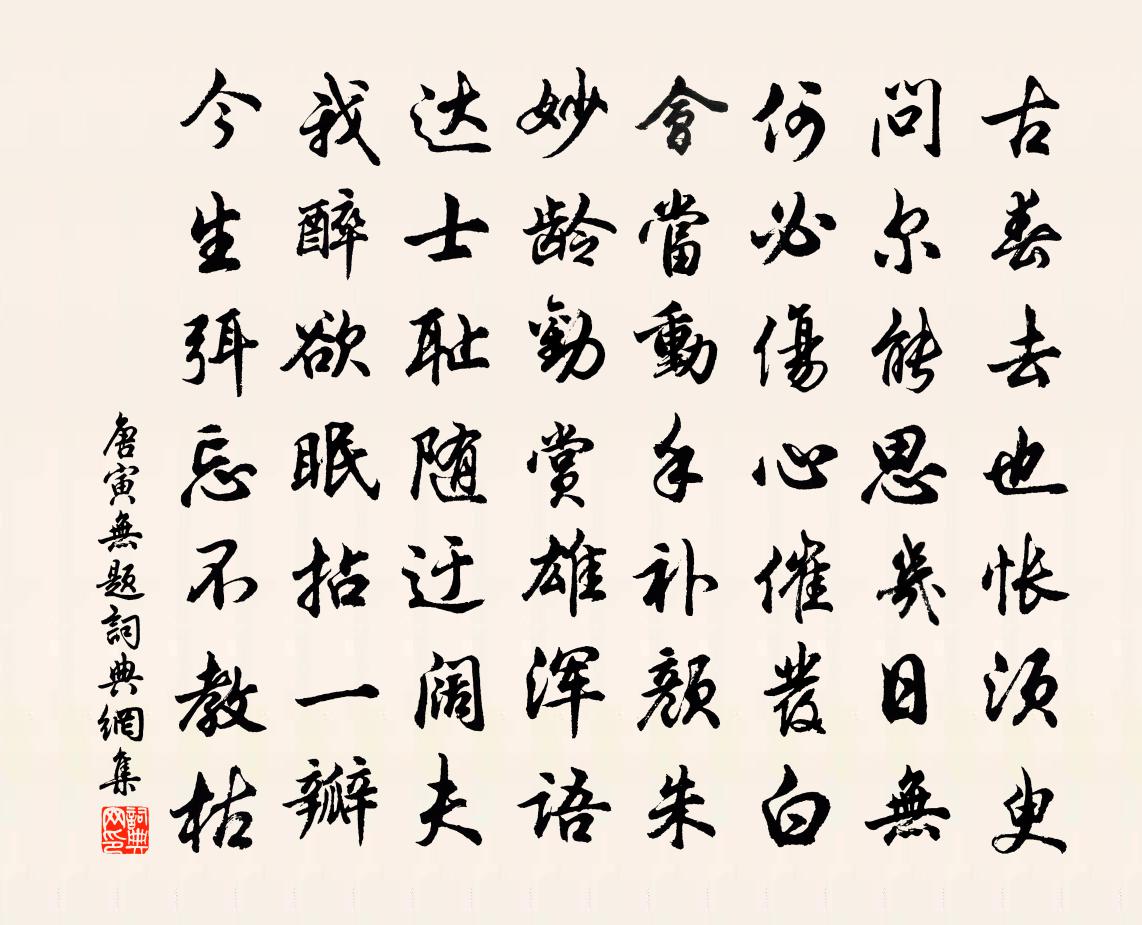 古春去也怅须臾
問尔能思幾日無
何必傷心催發白
會當動手补颜朱
妙龄勸赏雄浑语
达士耻随迂阔夫
我醉欲眠拈一瓣
今生弭忘不教枯
唐寅無题詞典網集
詞典网印